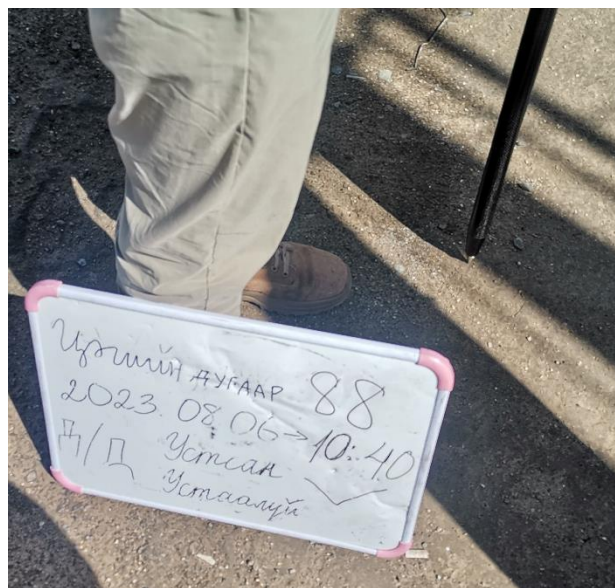 Цэгийн ДУГААР 88
2023. 08. 06 → 10:40
Д/Д Устсан ✓
Устаагүй